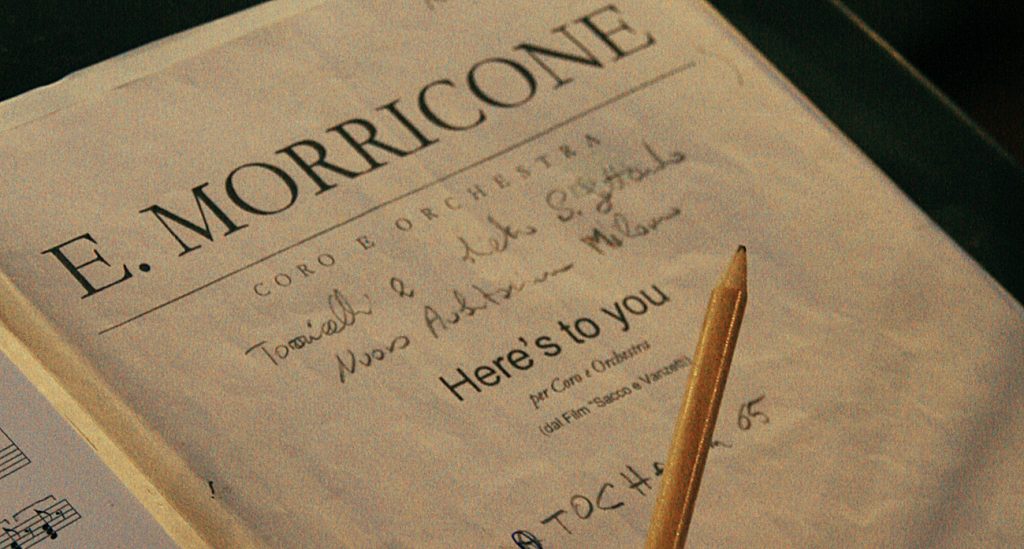 E. MORRICONE
CORO E ORCHESTRA
Torricelli 2
Nuovo Auditorium Milano
Here's to you
per Coro e Orchestra
(dal Film "Sacco e Vanzetti
65